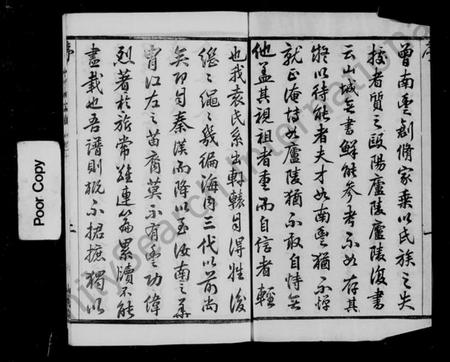 序
曾南豐創脩家乘以氏族之失
授者質之歐陽廬陵廬陵復書
云山城無書解能參考不如存其
然以待能者夫才如南豐猶不憚
就正淹博如廬陵猶不敢自恃無
他蓋其視祖者重而自信者輕
也我袁氏系出軒轅自得姓後
繩繩幾徧海內三代以前尚
矣即自秦漢而降以至汝南之
江左之苗裔莫不有功偉
烈著於旂常雖連篇累牘不能
盡載也吾譜則概不捃摭獨以
序
Poor Copy